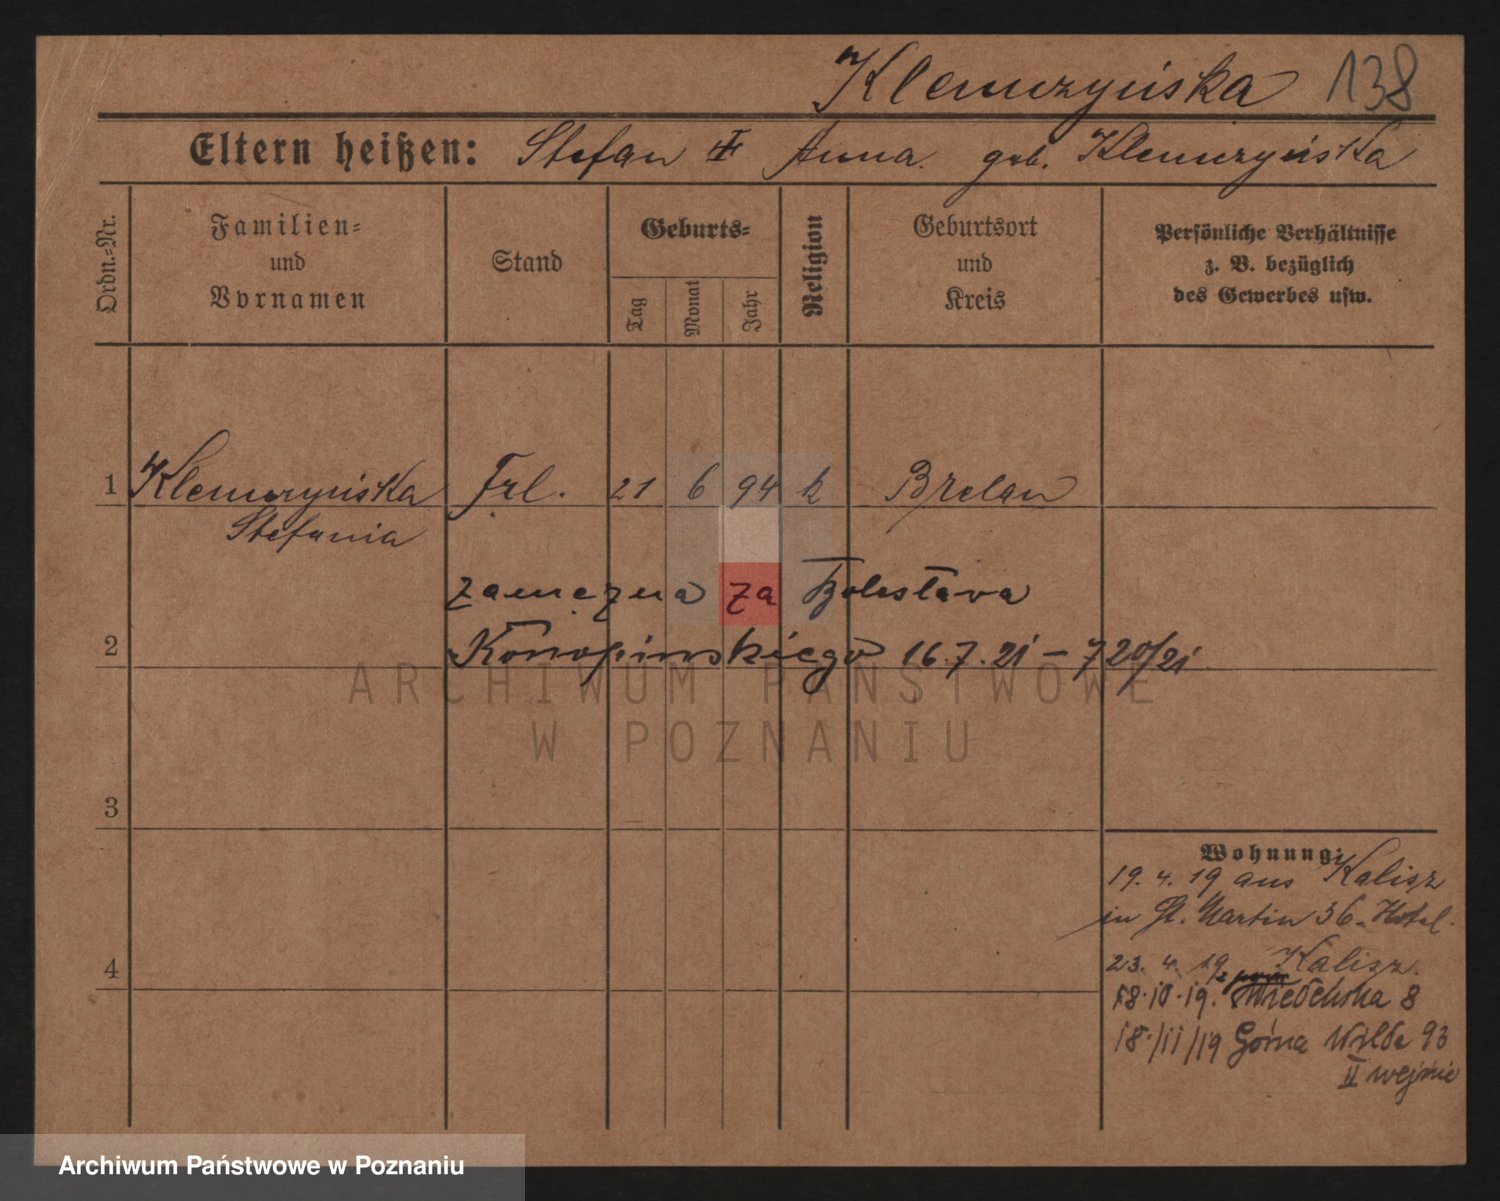 Klemczyńska 138
Eltern heißen: Stefan Anna geb. Klemczyńska
Ordn.=Nr.
Familien=
und
Vornamen
Stand
Geburts=
Tag
Monat
Jahr
Religion
Geburtsort
und
Kreis
Persönliche Verhältnisse
z. B. bezüglich
des Gewerbes usw.
1 Klemczyńska Frl. 21 6 94 k Breslau
Stefania
zamężna za Bolesława
2 Konopinskiego 16.7.21 – 720/21
ARCHIWUM PAŃSTWOWE
W POZNANIU
3
Wohnung:
19. 4. 19 aus Kalisz
in St. Martin 36 Hotel
4
23. 4. 19 Kalisz.
18.10.19. 8
18/11/19 Górna Wilda 93
II wejście
Archiwum Państwowe w Poznaniu